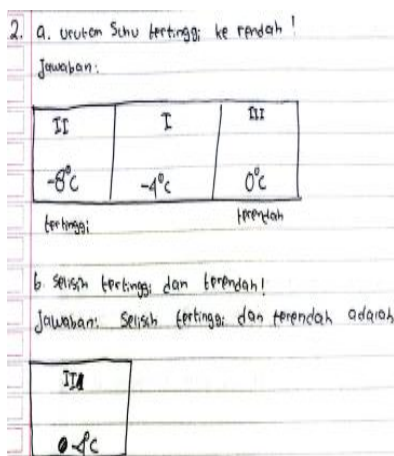 2. a. urutan Suhu tertinggi ke rendah!
Jawaban:
II I III
-8°c -4°c 0°c
tertinggi terendah
b. selisih tertinggi dan terendah!
Jawaban: selisih tertinggi dan terendah adalah
III
-4°c